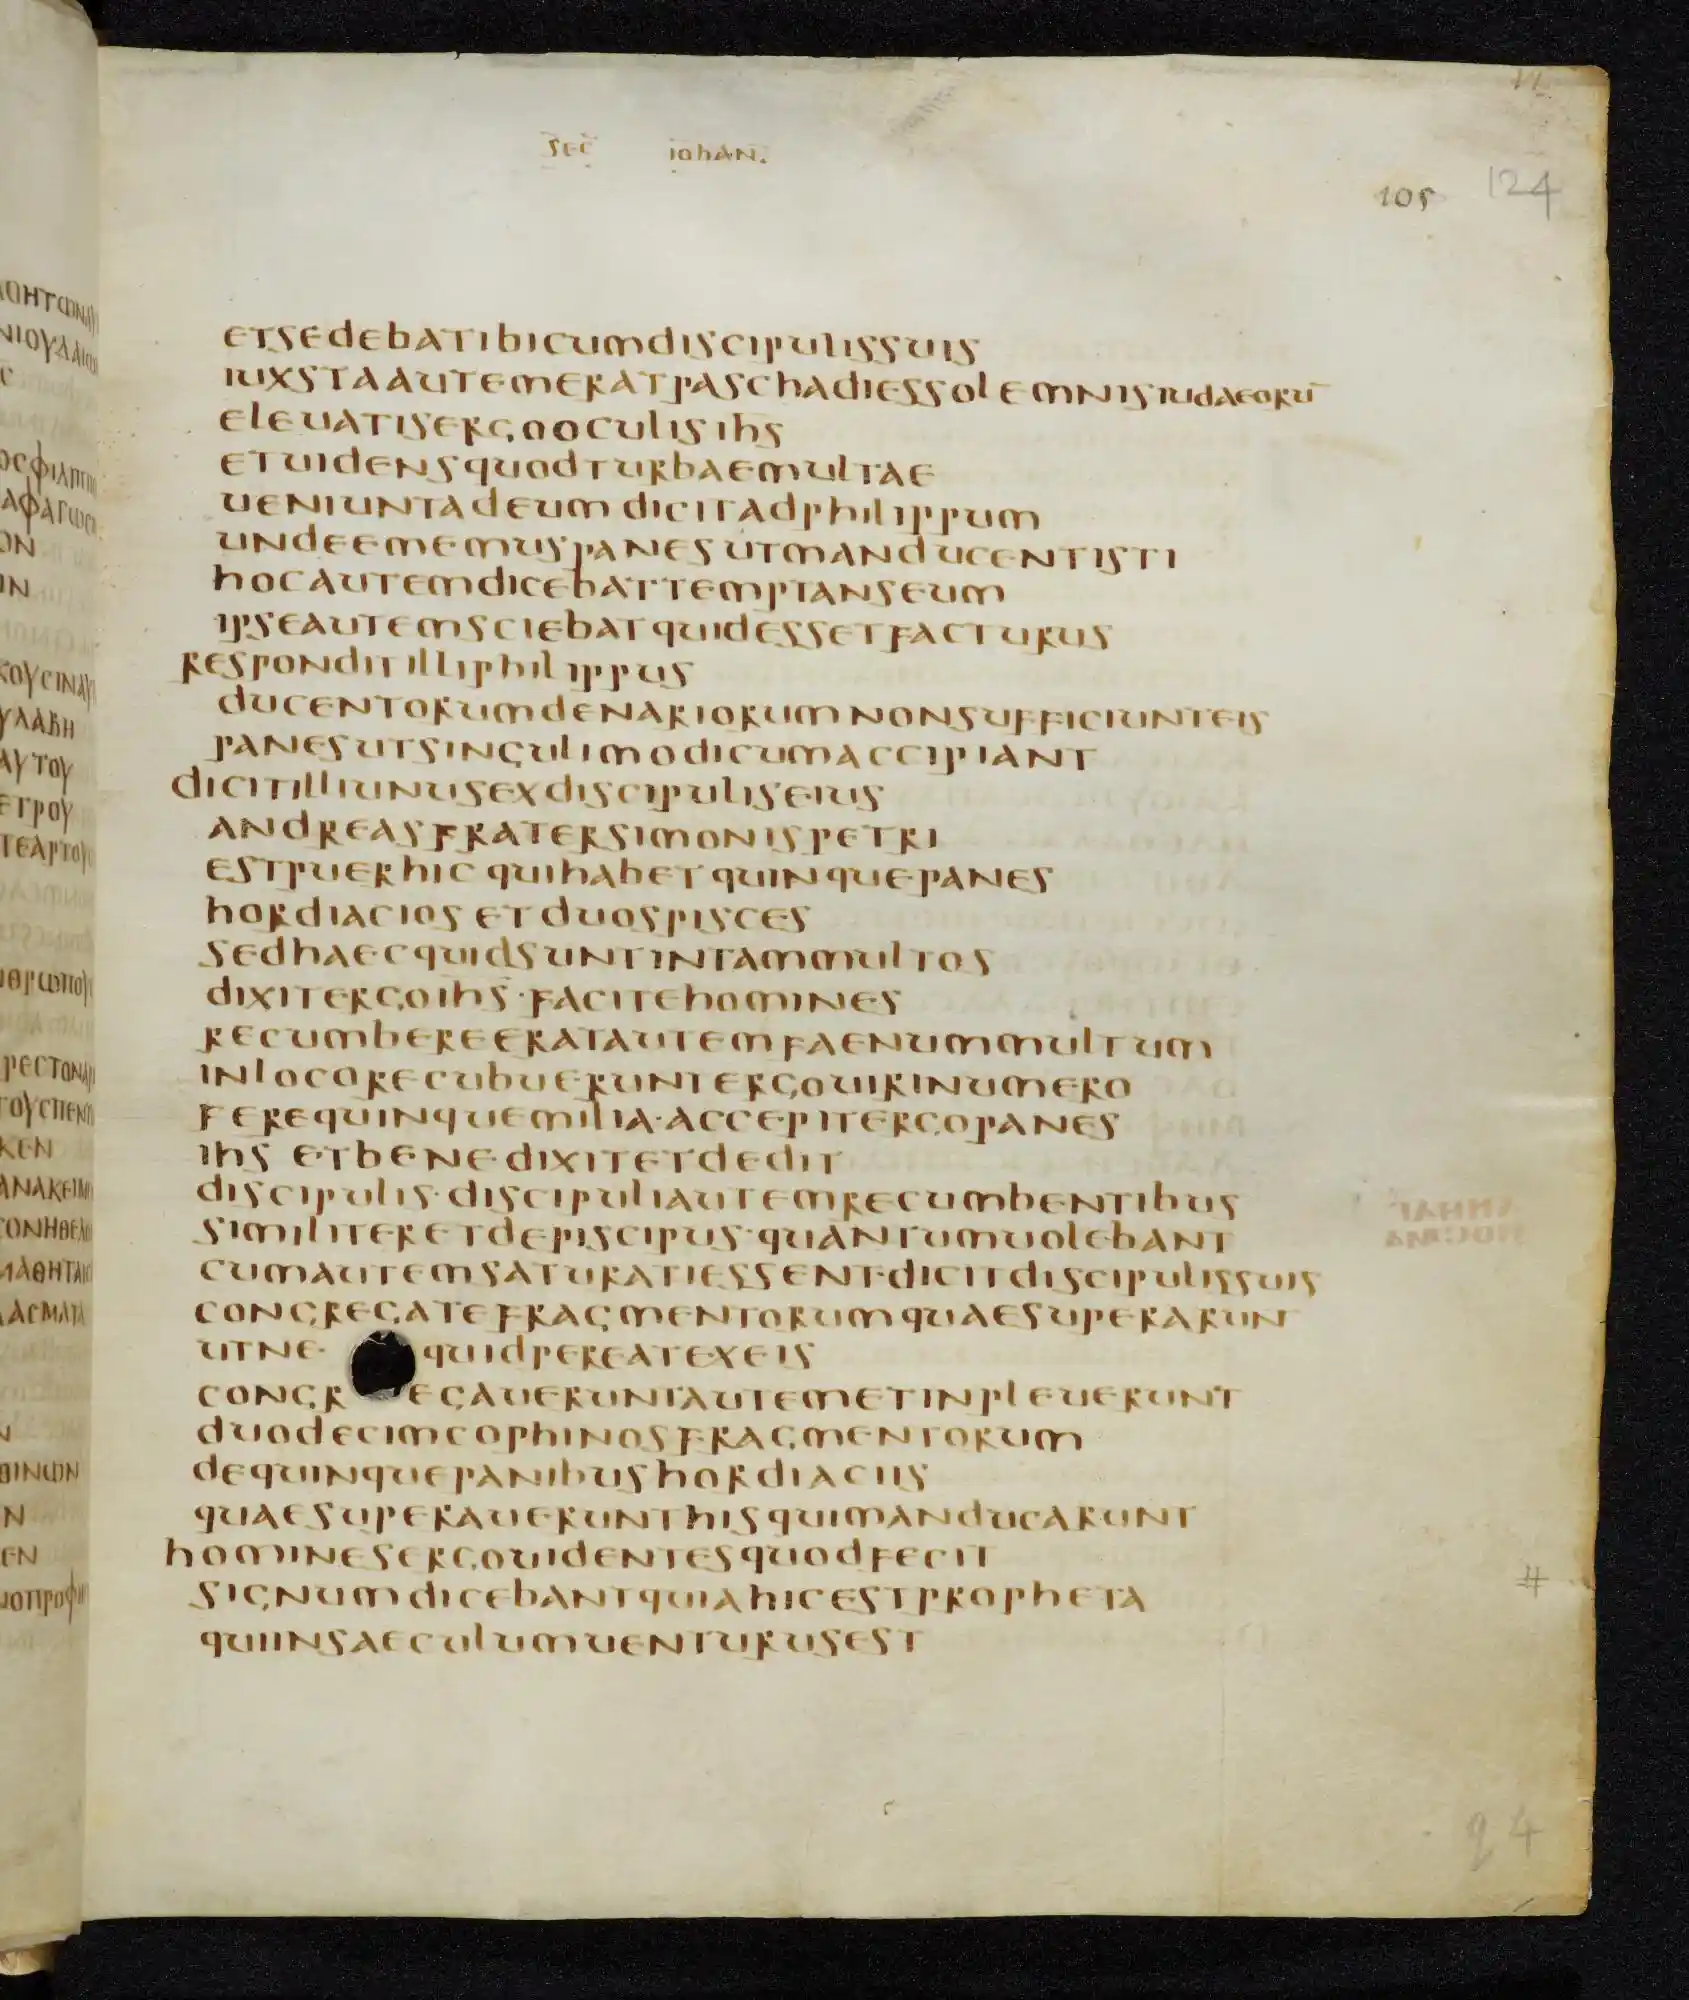 sec iohan.
105 124
etsedebatibicumdiscipulissuis
iuxstaautemeratpaschadiessolemnisiudaeorū
eleuatisergooculisihs
etuidensquodturbaemultae
ueniuntadeum dicitadphilippum
undeememuspanesutmanducentisti
hocautemdicebattemptanseum
ipseautemsciebatquidessetfacturus
responditilliphilippus
ducentorumdenariorumnonsufficiunteis
panesutsingulimodicumaccipiant
dicitilliunusexdiscipuliseius
andreasfratersimonispetri
estpuerhic quihabetquinquepanes
hordiacios etduospisces
sedhaecquidsuntintammultos
dixitergoihs·facitehomines
recumbereeratautemfaenummultum
inlocorecubueruntergouirinumero
ferequinquemilia·accepitergopanes
ihs etbenedixitetdedit
discipulis·discipuliautemrecumbentibus
similiteretdepiscipus·quantumuolebant
cumautemsaturatiessent·dicitdiscipulissuis
congregatefragmentorumquaesuperarunt
utne· quidpereatexeis
congr egaueruntautemetinpleuerunt
duodecimcophinosfragmentorum
dequinquepanibushordiaciis
quaesuperauerunthisquimanducarunt
hominesergouidentesquodfecit
signumdicebantquiahicestpropheta
quiinsaeculumuenturusest